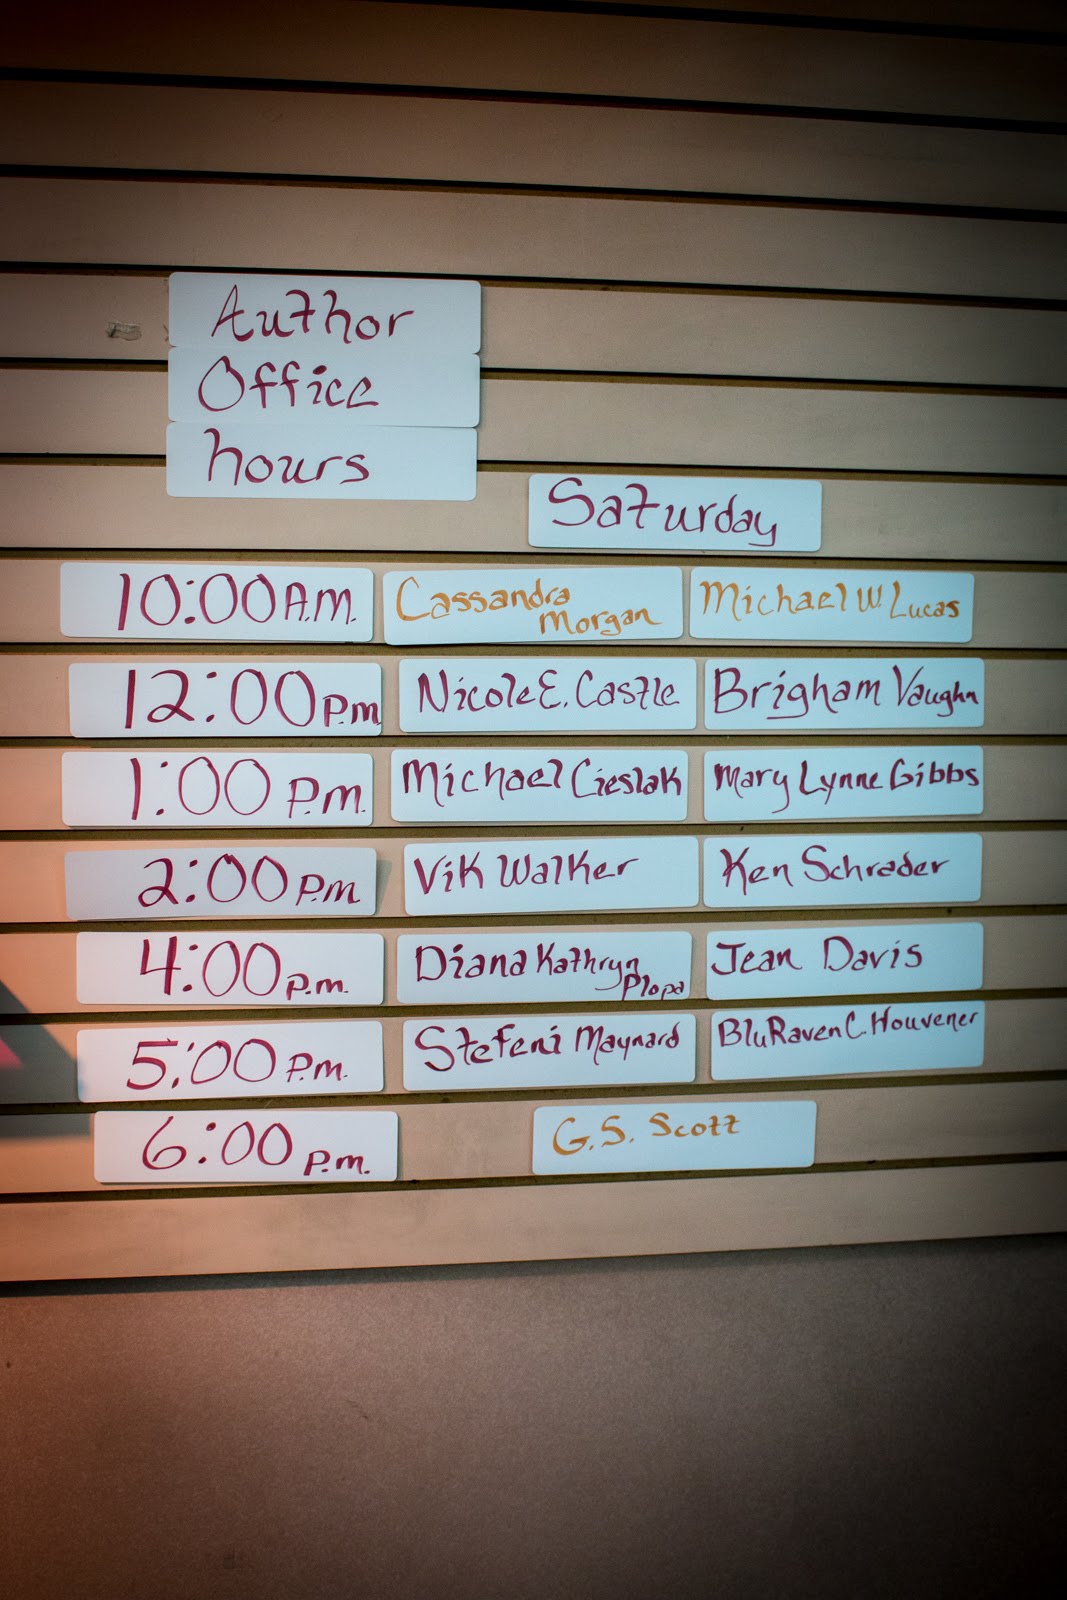 Author
Office
hours
Saturday
10:00 A.M. Cassandra Morgan Michael W. Lucas
12:00 P.m Nicole E. Castle Brigham Vaughn
1:00 P.m. Michael Cieslak Mary Lynne Gibbs
2:00 P.m Vik Walker Ken Schrader
4:00 p.m. Diana Kathryn Plopa Jean Davis
5:00 P.m. Stefeni Maynard BluRaven C. Houvener
6:00 p.m. G.S. Scott